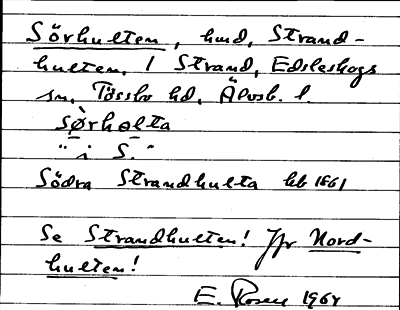 Sörhulten, hmd, Strand-
hulten, 1 Strand, Edsleskogs
sn, Tössbo hd, Älvsb. l.
sørhalta
"i S."
Södra Strandhulta hb 1861
Se Strandhulten! Jfr Nord-
hulten!
E. Rosen 1964